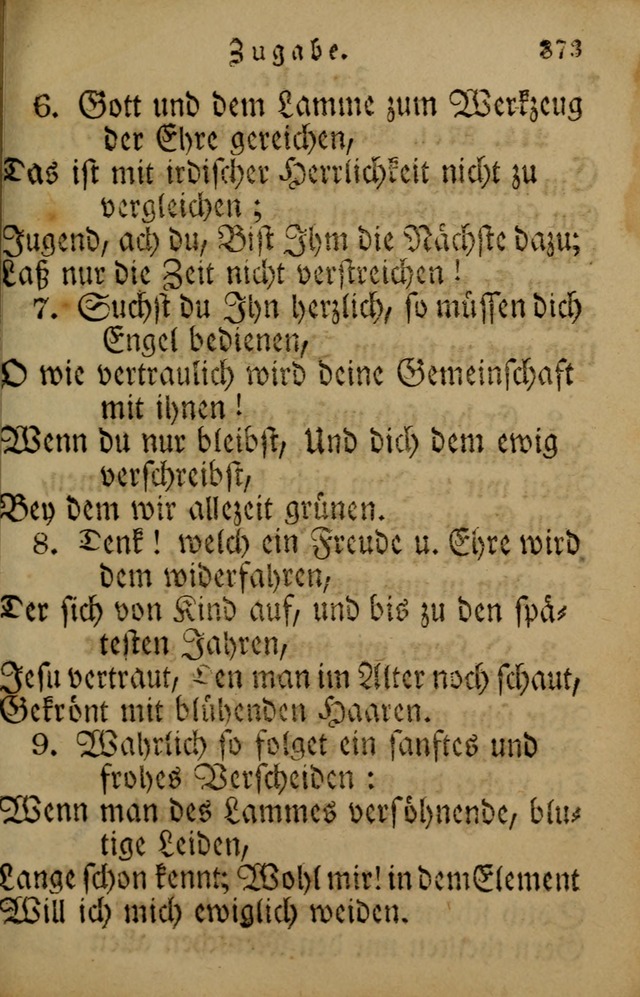 Zugabe. 373
6. Gott und dem Lamme zum Werkzeug
der Ehre gereichen,
Das ist mit irdischer Herrlichkeit nicht zu
vergleichen ;
Jugend, ach du, Bist Ihm die Nächste dazu;
Laß nur die Zeit nicht verstreichen !
7. Suchst du Ihn herzlich, so müssen dich
Engel bedienen,
O wie vertraulich wird deine Gemeinschaft
mit ihnen !
Wenn du nur bleibst, Und dich dem ewig
verschreibst,
Bey dem wir allezeit grünen.
8. Denk ! welch ein Freude u. Ehre wird
dem widerfahren,
Der sich von Kind auf, und bis zu den spä-
testen Jahren,
Jesu vertraut, Den man im Alter noch schaut,
Gekrönt mit blühenden Haaren.
9. Wahrlich so folget ein sanftes und
frohes Verscheiden :
Wenn man des Lammes versöhnende, blu-
tige Leiden,
Lange schon kennt; Wohl mir! in dem Element
Will ich mich ewiglich weiden.